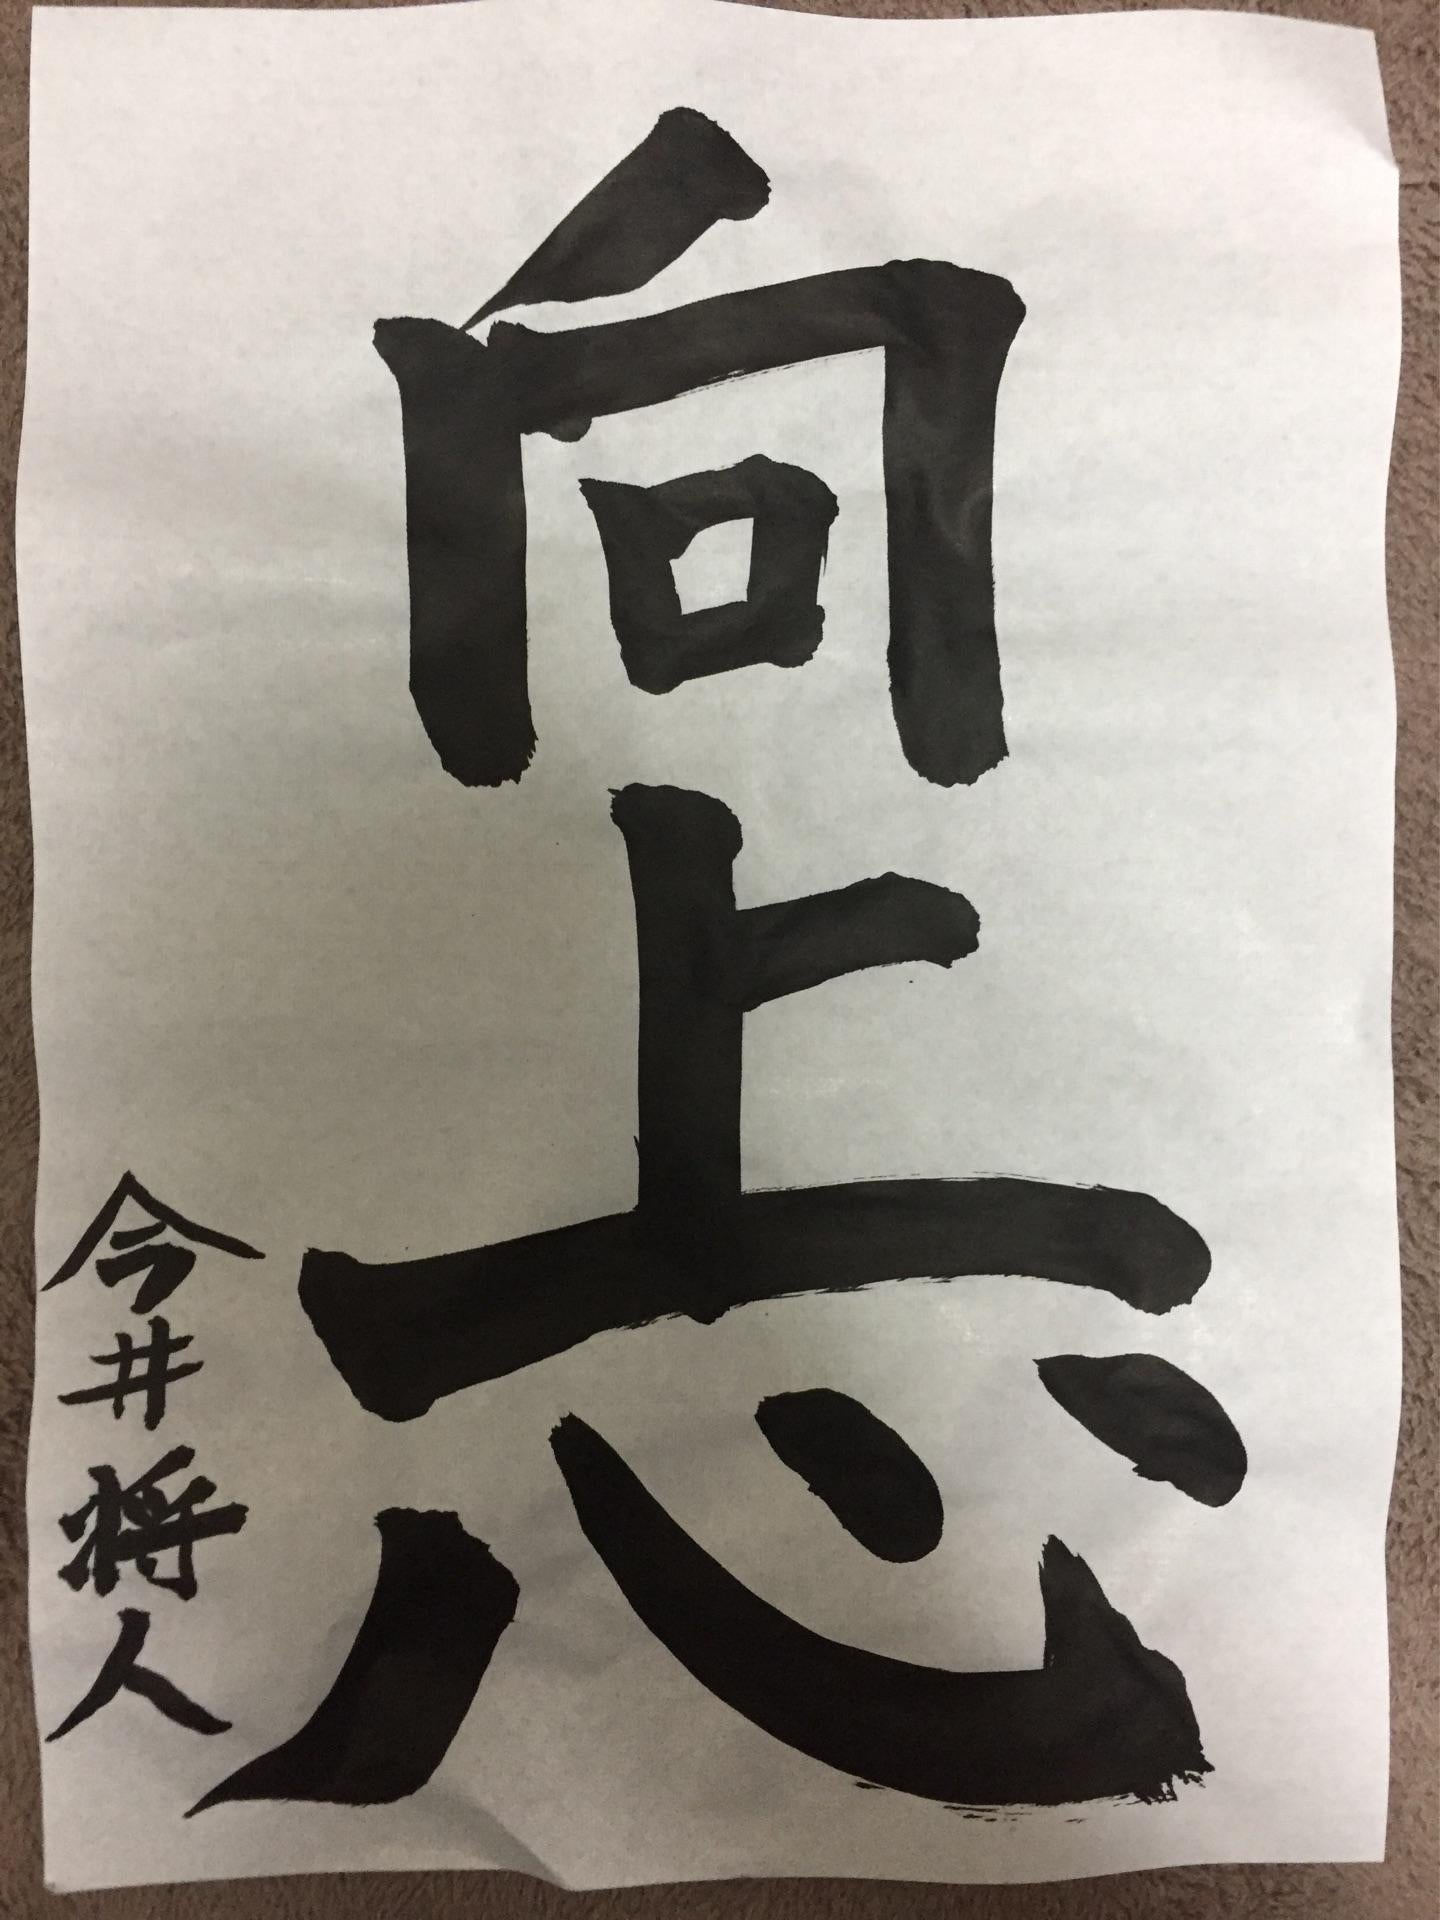 向上心
今井将人